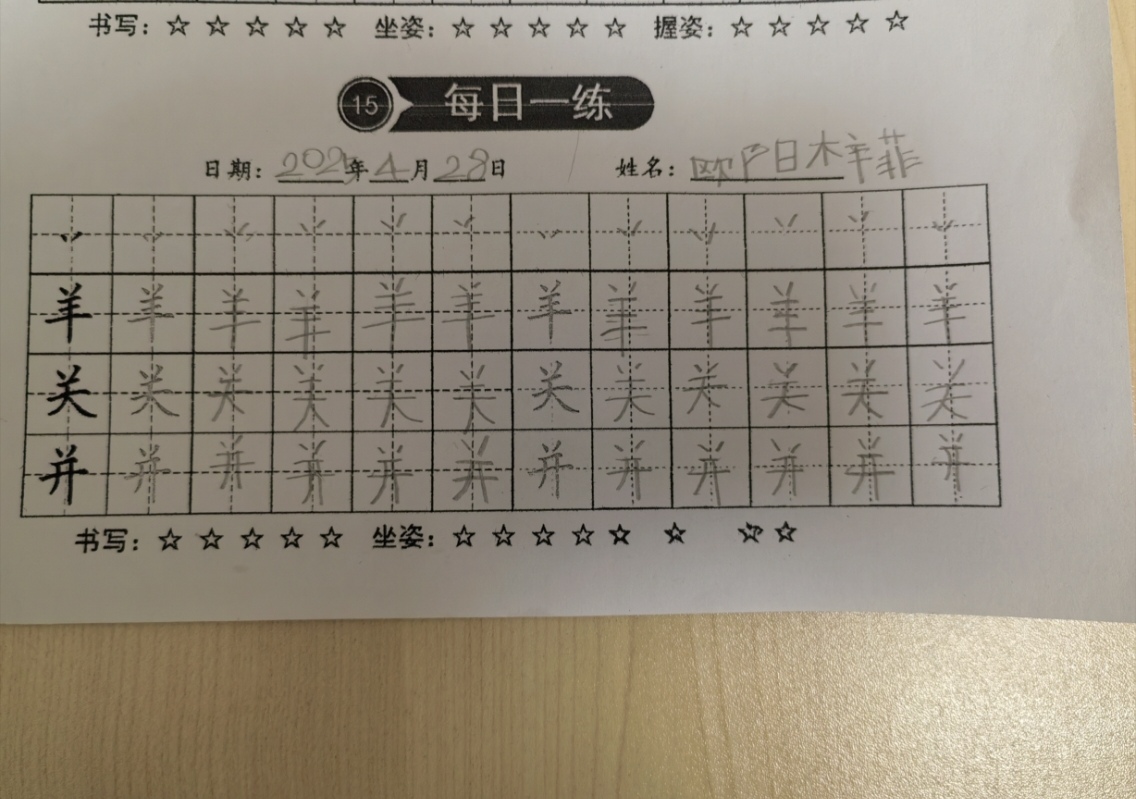 书写：☆ ☆ ☆ ☆ ☆ 坐姿：☆ ☆ ☆ ☆ ☆ 握姿：☆ ☆ ☆ ☆ ☆
15 每日一练
日期：2025年4月28日 姓名：欧阳梓菲
丷 丷 丷 丷 丷 丷 丷 丷 丷 丷 丷 丷
羊 羊 羊 羊 羊 羊 羊 羊 羊 羊 羊 羊
关 关 关 关 关 关 关 关 关 关 关 关
并 并 并 并 并 并 并 并 并 并 并 并
书写：☆ ☆ ☆ ☆ ☆ 坐姿：☆ ☆ ☆ ☆ ☆ ☆ ☆ ☆